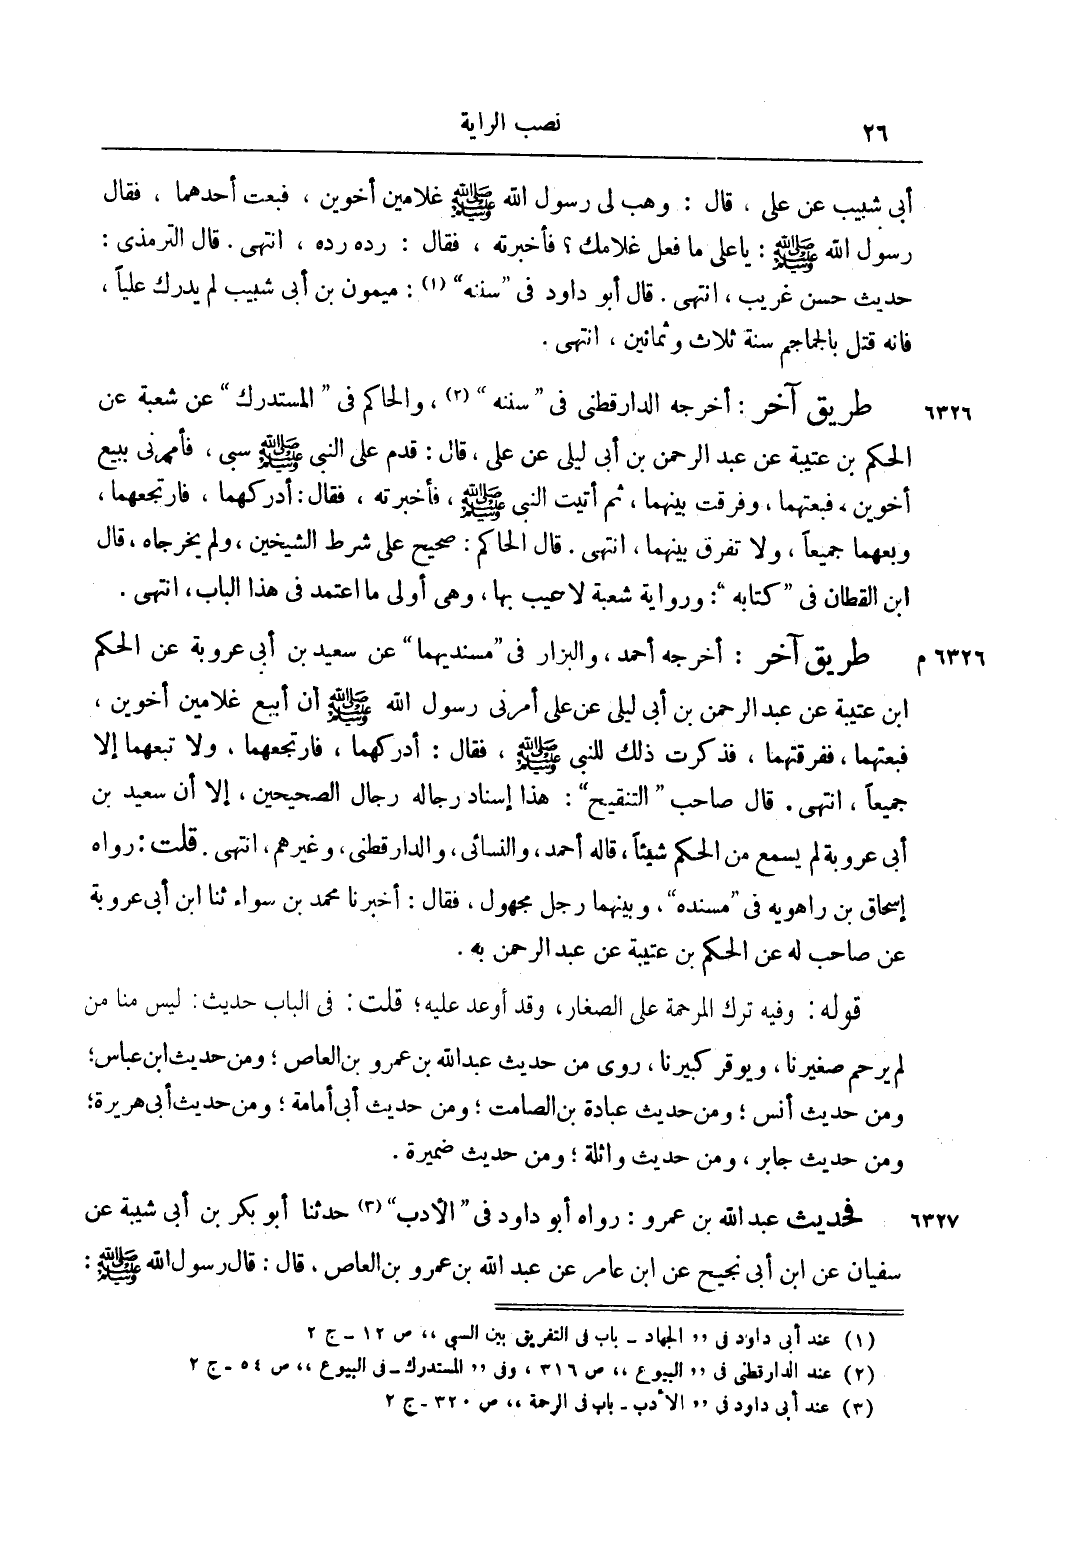 ٢٦ نصب الراية
أبى شبيب عن على ، قال : وهب لى رسول الله ﷺ غلامين أخوين ، فبعت أحدهما ، فقال
رسول الله ﷺ : ياعلى ما فعل غلامك ؟ فأخبرته ، فقال : رده رده ، انتهى . قال الترمذى :
حديث حسن غريب ، انتهى . قال أبو داود فى "سننه" (١) : ميمون بن أبى شبيب لم يدرك علياً ،
فانه قتل بالجماجم سنة ثلاث وثمانين ، انتهى .
٦٣٢٦ طريق آخر : أخرجه الدارقطنى فى "سننه" (٢) ، والحاكم فى "المستدرك" عن شعبة عن
الحكم بن عتيبة عن عبد الرحمن بن أبى ليلى عن على ، قال : قدم على النبى ﷺ سبى ، فأمرنى ببيع
أخوين ، فبعتهما ، وفرقت بينهما ، ثم أتيت النبى ﷺ ، فأخبرته ، فقال : أدركهما ، فارتجعهما ،
وبعهما جميعاً ، ولا تفرق بينهما ، انتهى . قال الحاكم : صحيح على شرط الشيخين ، ولم يخرجاه ، قال
ابن القطان فى "كتابه" : ورواية شعبة لاعيب بها ، وهى أولى ما اعتمد فى هذا الباب ، انتهى .
٦٣٢٦ م طريق آخر : أخرجه أحمد ، والبزار فى "مسنديهما" عن سعيد بن أبى عروبة عن الحكم
ابن عتيبة عن عبد الرحمن بن أبى ليلى عن على أمرنى رسول الله ﷺ أن أبيع غلامين أخوين ،
فبعتهما ، ففرقتهما ، فذكرت ذلك للنبى ﷺ ، فقال : أدركهما ، فارتجعهما ، ولا تبعهما إلا
جميعاً ، انتهى . قال صاحب "التنقيح" : هذا إسناد رجاله رجال الصحيحين ، إلا أن سعيد بن
أبى عروبة لم يسمع من الحكم شيئاً ، قاله أحمد ، والنسائى ، والدارقطنى ، وغيرهم ، انتهى . قلت : رواه
إسحاق بن راهويه فى "مسنده" ، وبينهما رجل مجهول ، فقال : أخبرنا محمد بن سواء ثنا ابن أبى عروبة
عن صاحب له عن الحكم بن عتيبة عن عبد الرحمن به .
قوله : وفيه ترك المرحمة على الصغار ، وقد أوعد عليه ؛ قلت : فى الباب حديث : ليس منا من
لم يرحم صغيرنا ، ويوقر كبيرنا ، روى من حديث عبد الله بن عمرو بن العاص ؛ ومن حديث ابن عباس ؛
ومن حديث أنس ؛ ومن حديث عبادة بن الصامت ؛ ومن حديث أبى أمامة ؛ ومن حديث أبى هريرة ؛
ومن حديث جابر ، ومن حديث واثلة ؛ ومن حديث ضميرة .
٦٣٢٧ فحديث عبد الله بن عمرو : رواه أبو داود فى "الأدب" (٣) حدثنا أبو بكر بن أبى شيبة عن
سفيان عن ابن أبى نجيح عن ابن عامر عن عبد الله بن عمرو بن العاص ، قال : قال رسول الله ﷺ :
(١) عند أبى داود فى ,, الجهاد ـ باب فى التفريق بين السبي ،، ص ١٢ ـ ج ٢
(٢) عند الدارقطنى فى ,, البيوع ،، ص ٣١٦ ، وفى ,, المستدرك ـ فى البيوع ،، ص ٥٤ ـ ج ٢
(٣) عند أبى داود فى ,, الأدب ـ باب فى الرحمة ،، ص ٣٢٠ ـ ج ٢